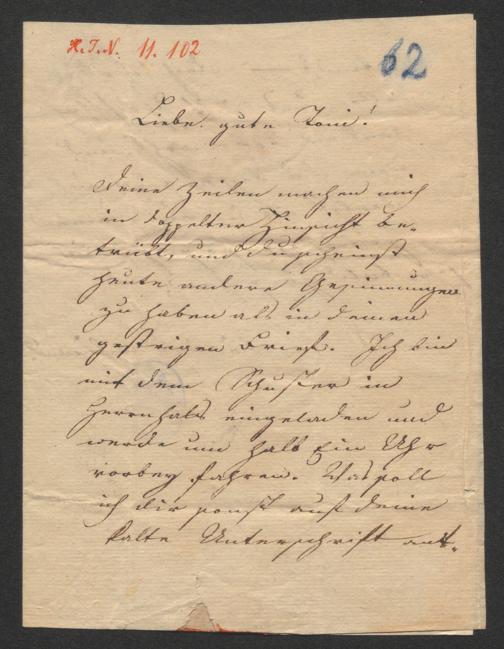 H.I.N. 11.102
62
Liebe gute Toni!
Deine Zeilen machen mich
in doppelter Hinsicht be-
trübt, und du scheinst
heute andere Gesinnungen
zu haben als in deinem
gestrigen Brief. Ich bin
mit dem Schuster in
Herrnhals eingeladen und
werde um halb Ein Uhr
vorbey fahren. Was soll
ich dir sonst auf deine
kalte Unterschrift ant-